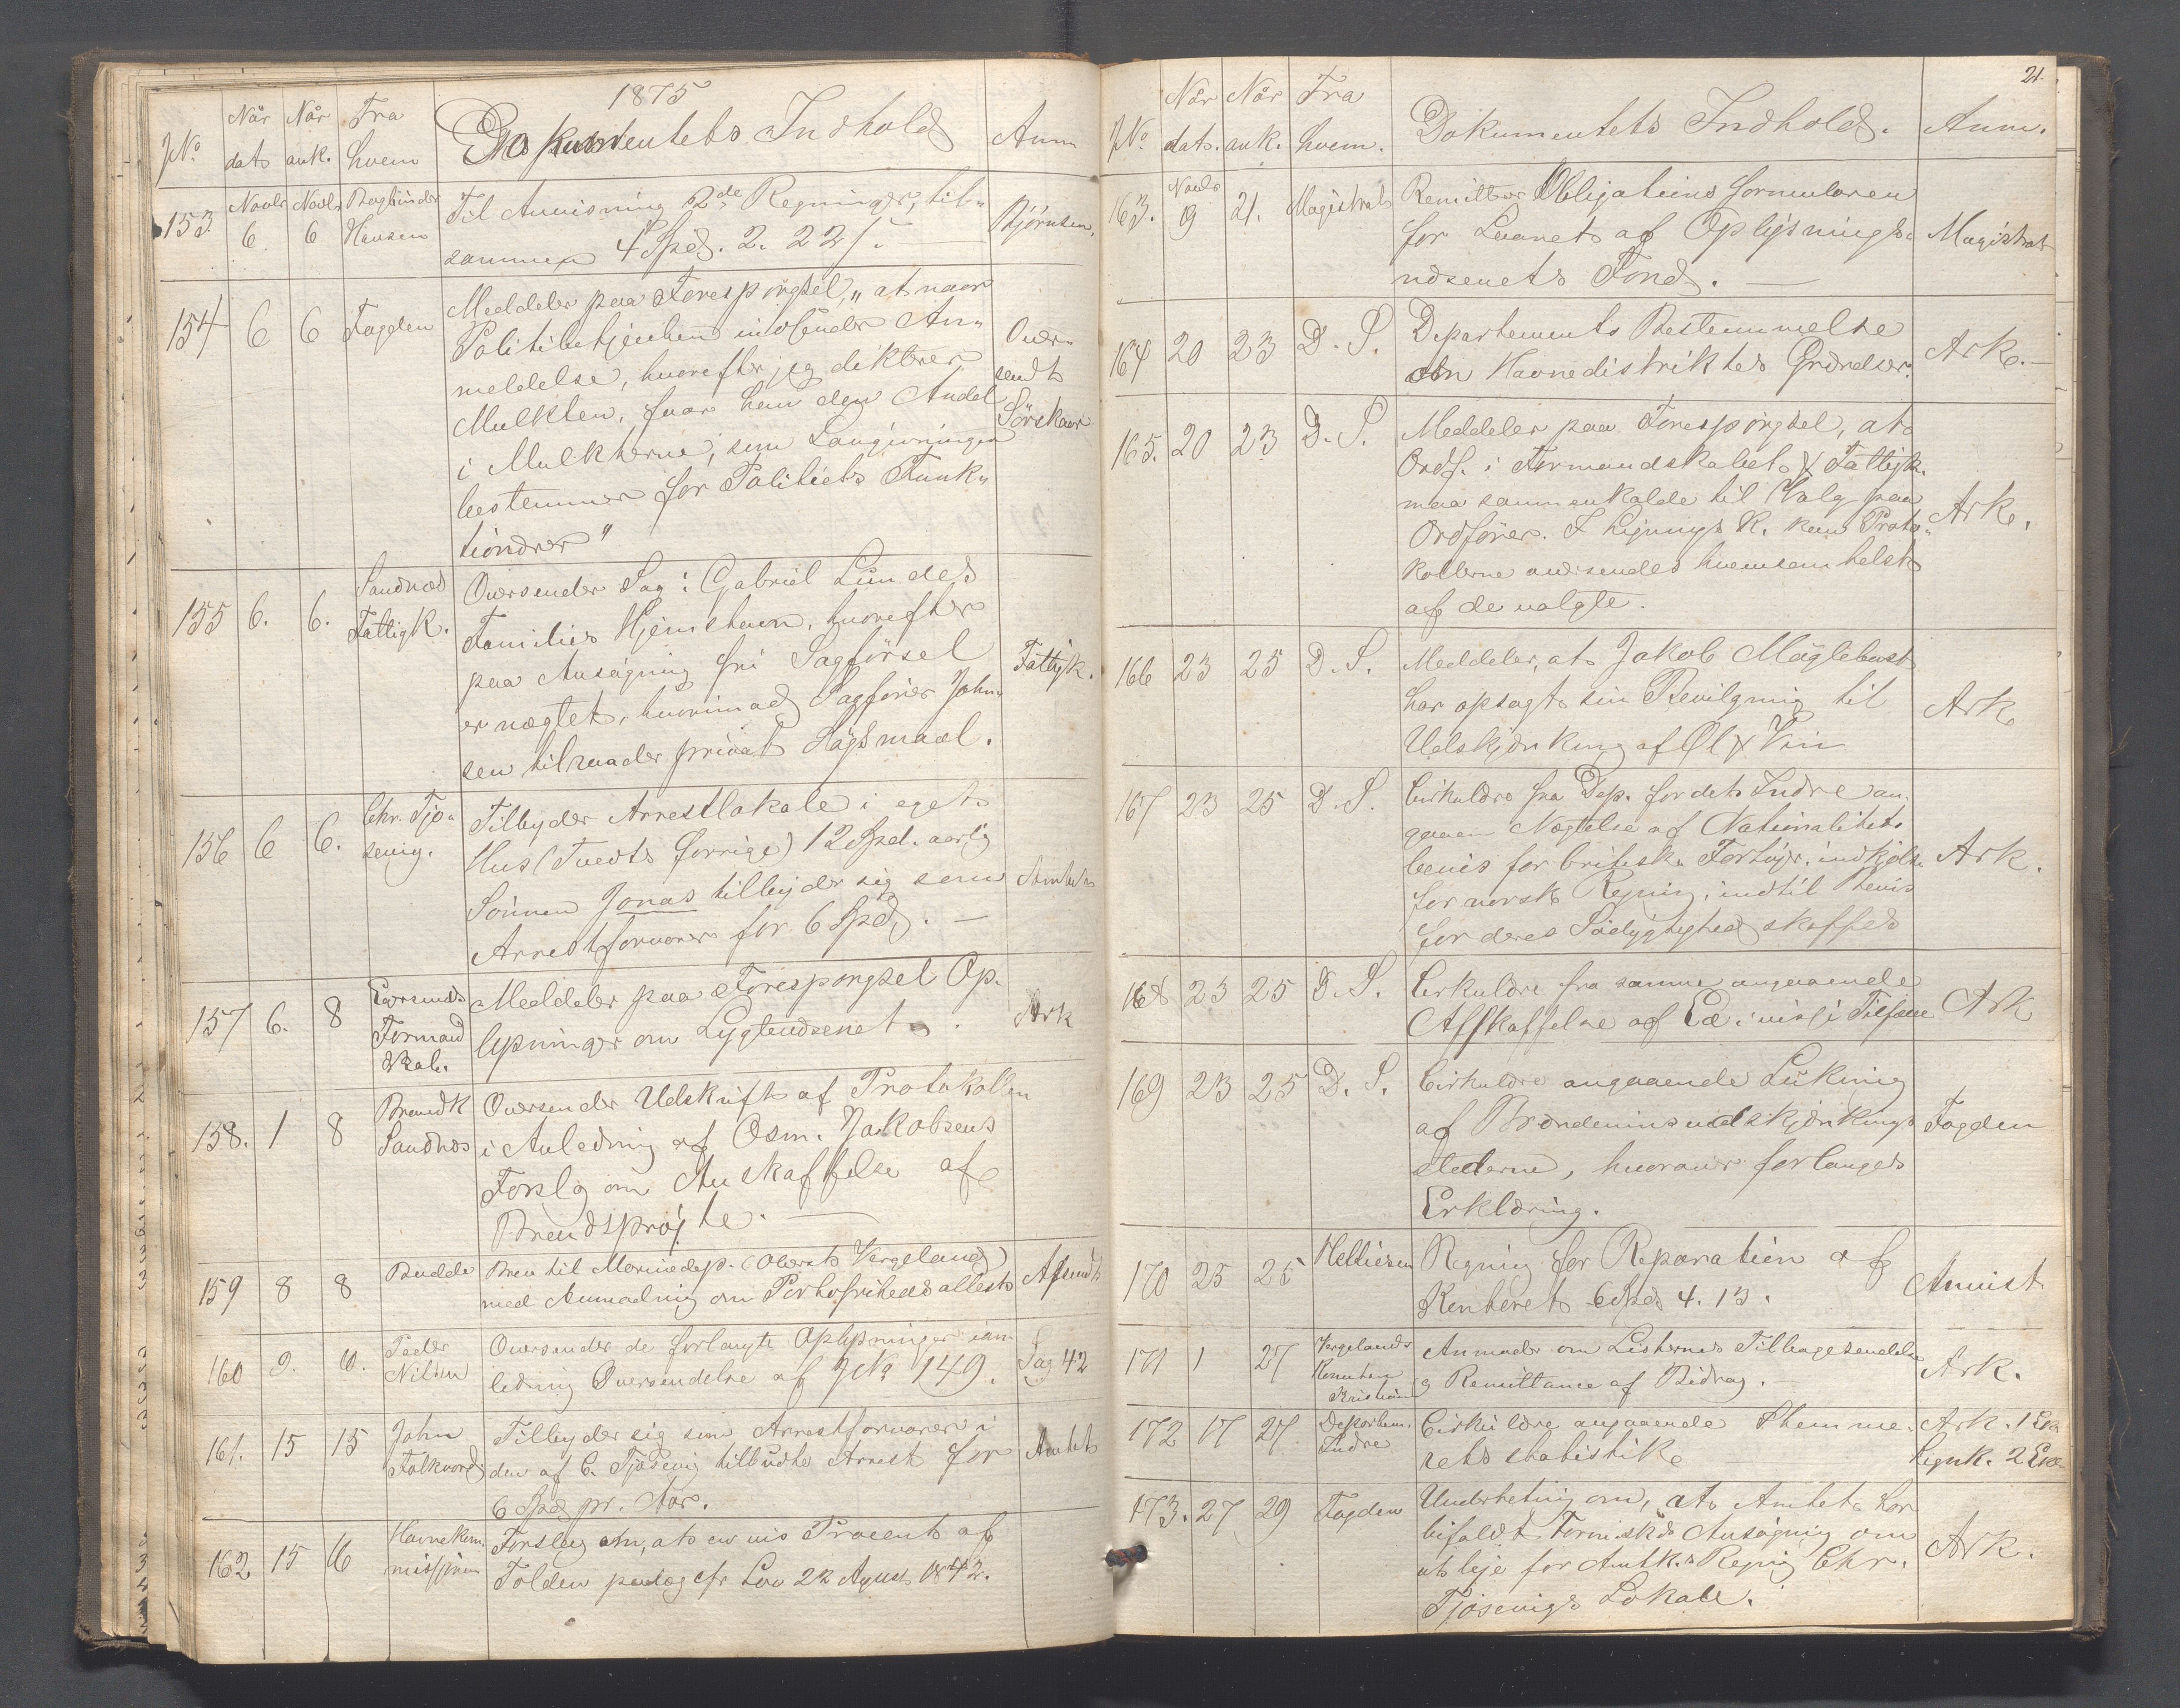 1875
JNo. Når dats Når ank. Fra hvem Dokumentets Indhold Anm
153. Novbr 6. Novbr 6 Bogbinder Hansen
Til Anvisning 2de Regninger, til-
sammen 4 Spd. 2. 22 /.
Bjørnsen.
154 6 6 Fogden
Meddeler paa Forespørgsel, "at naar
Politibetjenten indsender An-
meldelse, hvorefter jeg dikterer
Mulkten, faar han den Andel
i Mulkterne, som Lovgivningen
bestemmer for Politiets Funk-
tionærer"
Over-
sendt
Sörskaar
155 6. 6. Sandnæs Fattigk.
Oversender Sag: Gabriel Lundes
Families Hjemstavn, hvorefter
paa Ansøgning fri Sagførsel
er nægtet, hvorimod Sagfører John-
sen tilraader privat Søgsmaal.
Fattigk.
156 6 6. Chr. Tjø-
senvig.
Tilbyder Arrestlokale i eget
Hus (Tvedts forrige) 12 Spd. aarlig
Sönnen Jonas tilbyder sig som
Arrestforvarer for 6 Spd. —
Amtet
157 6. 8 Egersunds
Formand
skab.
Meddeler paa Forespørgsel Op-
lysninger om Lygtevæsenet.
Ark
158. 1 8 Brandk
Sandnes
Oversender Udskrift af Protokollen
i Anledning af Osm. Jakobsens
Forslg om Anskaffelse af
Brandsprøjte. —
159 8 8 Budde
Brev til Marinedep. (Oberst Vergeland)
med Anmodning om Portofrihedsattest
Afsendt
160 9. 10. Peder
Nilsen
Oversender de forlangte Oplysninger i an-
ledning Oversendelse af JNo 149.
Sag 42
161. 15 15 John
Folkvord
Tilbyder sig som Arrestforvarer i
den af C. Tjøsenvig tilbudte Arrest for
6 Spd pr. Aar.
Amtet
162 15 16 Havnekom-
missjonen
Forslag om, at en vis Procent af
Tolden cfr Lov 22 August 1842.
21.
JNo. Når dats. Når ank. Fra hvem. Dokumentets Indhold. Anm.
163. Novbr 9 21. Magistrat
Remitterer Obligations formularen
for Laanet af Oplysnings-
væsenets Fond. —
Magistrat
164 20 23 D. S.
Departements Bestemmelse
om Havnedistriktets Grændser.
Ark. —
165. 20 23 D. S.
Meddeler paa Forespørgsel, at
Ordf. i Formandskabet & Fattigk.
maa sammenkalde til Valg paa
Ordfører. I Lignings K. kan Proto-
kollerne oversendes hvemsomhelst
af de valgte.
Ark.
166 23 25 D. S.
Meddeler, at Jakob Mæglebust
har opsagt sin Bevilgning til
Udskjænkning af Øl & Vin
Ark
167 23 25 D. S.
Cirkulære fra Dep. for det Indre an-
gaaen Nægtelse af Nationalitets
bevis for britisk Fartøjer, indkjøbte
for norsk Regning, indtil Bevis
for deres Sødygtighed skaffes
Ark.
168 23 25 D. S.
Cirkulære fra samme angaaende
Afskaffelse af Ed i visse Tilfælde
Ark
169 23 25 D. S.
Cirkulære angaaende Lukning
af Brændevinsudskjænknings
stederne, hvorover forlanges
Erklæring.
Fogden
170 25 25 Helliesen
Regning for Reparation af
Kontoret 6 Spd 4. 13.
Anvist.
171 1 27 Vergelands
Komiteen
Kristiania
Anmoder om Listernes Tilbagesendelse
og Remittance af Bidrag. —
Ark.
172 17 27 Departem.
Indre
Cirkulære angaaende Stemme-
rets statistik
Ark. 1 Ex
Lignk. 2 Ex
173. 27 29 Fogden
Underretning om, at Amtet har
bifaldt Formskds Ansøgning om
at leje for Amtk.s Regnig Chr.
Tjøsenvigs Lokale.
Ark.